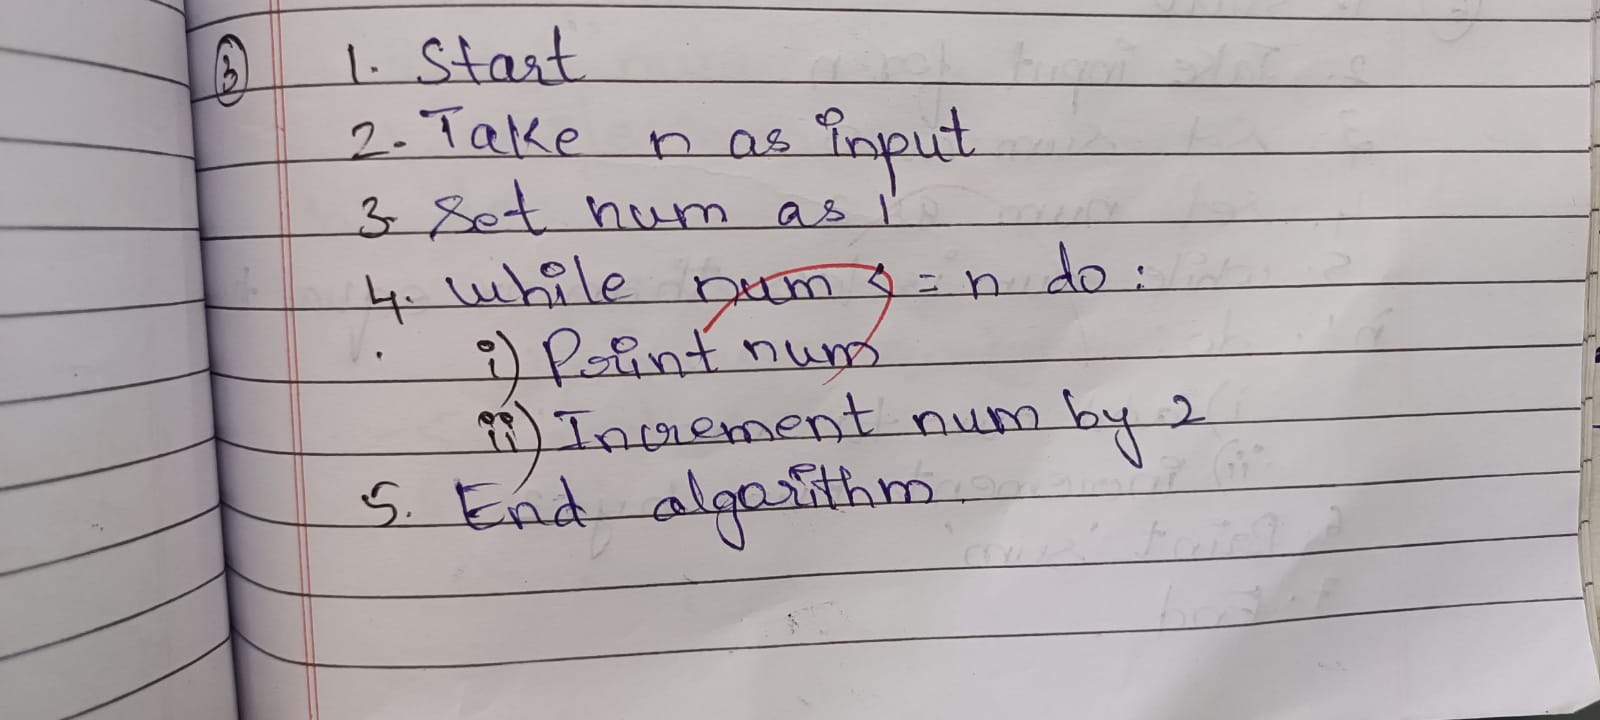 ③ 1. Start
2. Take n as input
3. Set num as 1
4. while num <= n do :
i) Print num
ii) Increment num by 2
5. End algorithm.